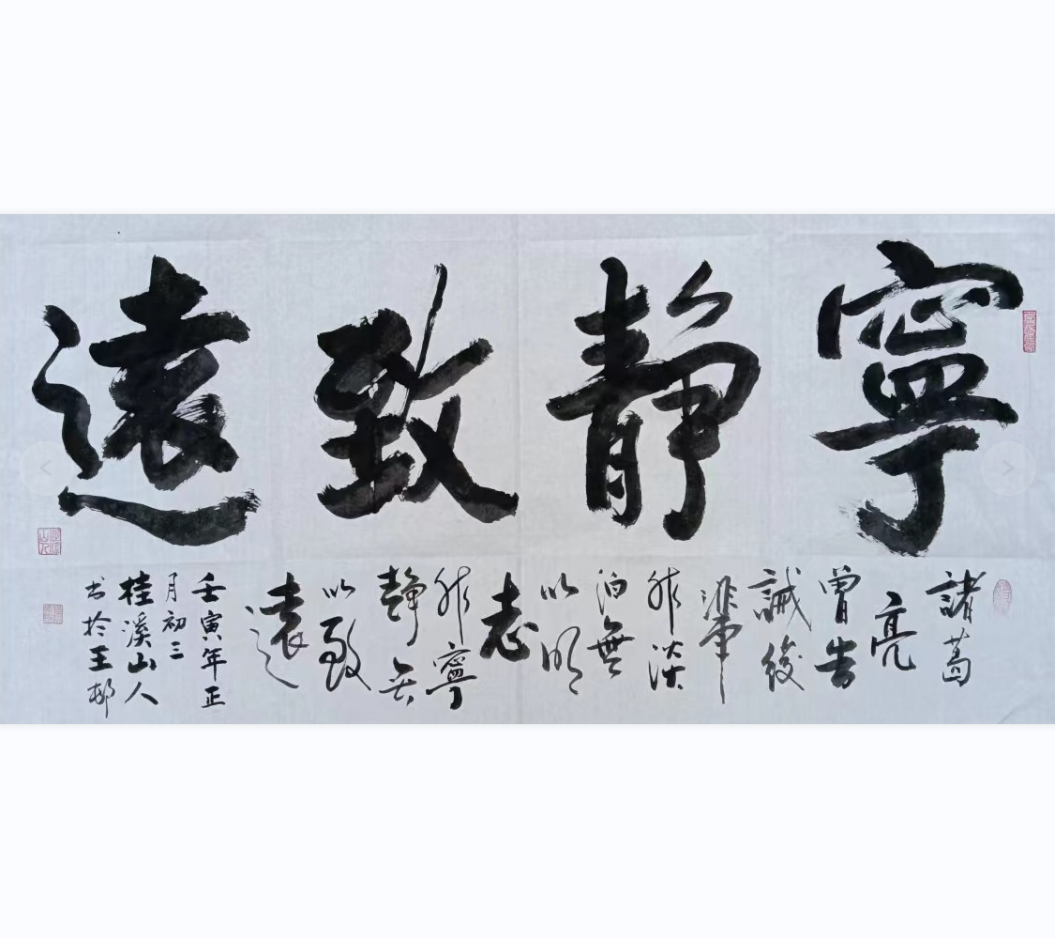 寧靜致遠
諸葛
亮
曾告
誡後
輩
非淡
泊無
以明
志
非寧
靜无
以致
遠
壬寅年正
月初三
桂溪山人
书於王邨